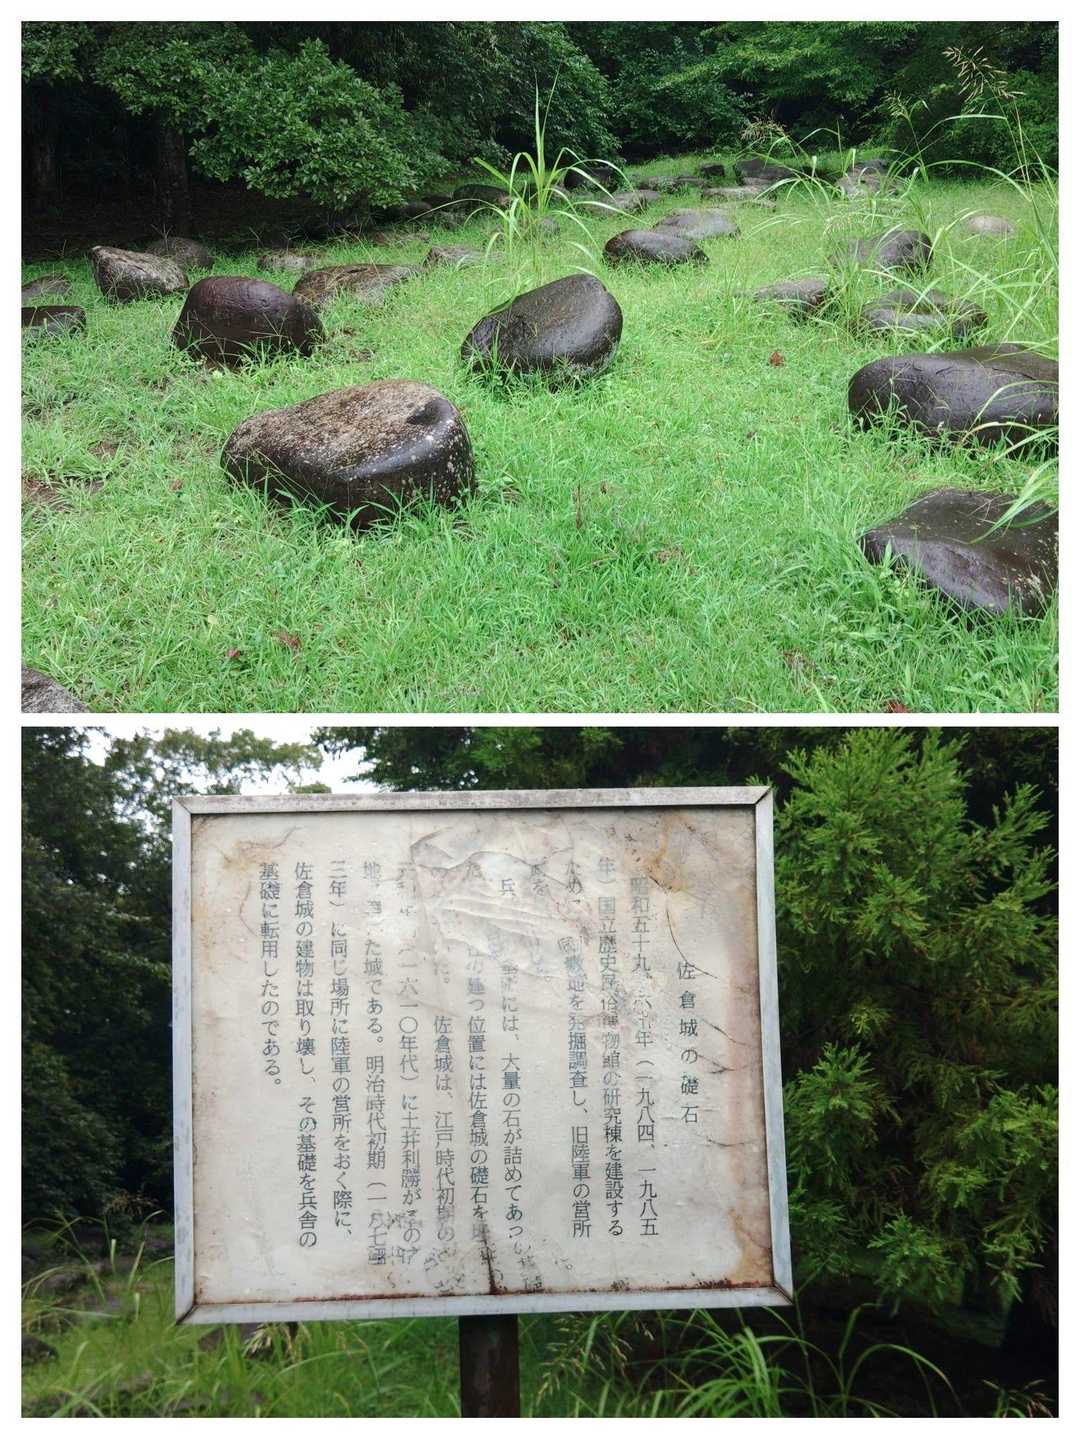 佐倉城の礎石
昭和五十九、六十年(一九八四、一九八五
年)国立歴史民俗博物館の研究棟を建設する
ために、 敷地を発掘調査し、旧陸軍の営所
を した。
兵 には、大量の石が詰めてあっ
の建つ位置には佐倉城の礎石を
た。 佐倉城は、江戸時代初期の
(一六一〇年代)に土井利勝がこの
地 た城である。明治時代初期(一八七
三年)に同じ場所に陸軍の営所をおく際に、
佐倉城の建物は取り壊し、その基礎を兵舎の
基礎に転用したのである。